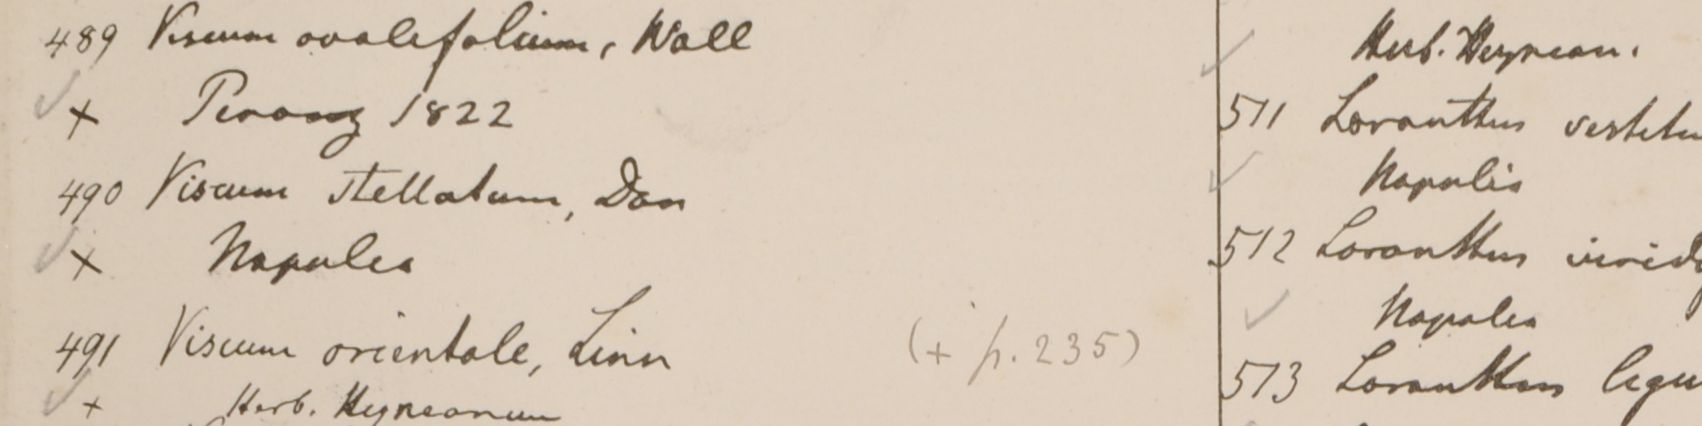 489 Viscum ovalifolium, Wall
+ Penang 1822
490 Viscum stellatum, Don
+ Napalia
491 Viscum orientale, Linn (+ p. 235)
+ Herb. Heyneanum
Herb. Heynean.
511 Loranthus vestitu
Napalia
512 Loranthus virid
Napalia
513 Loranthus ligu